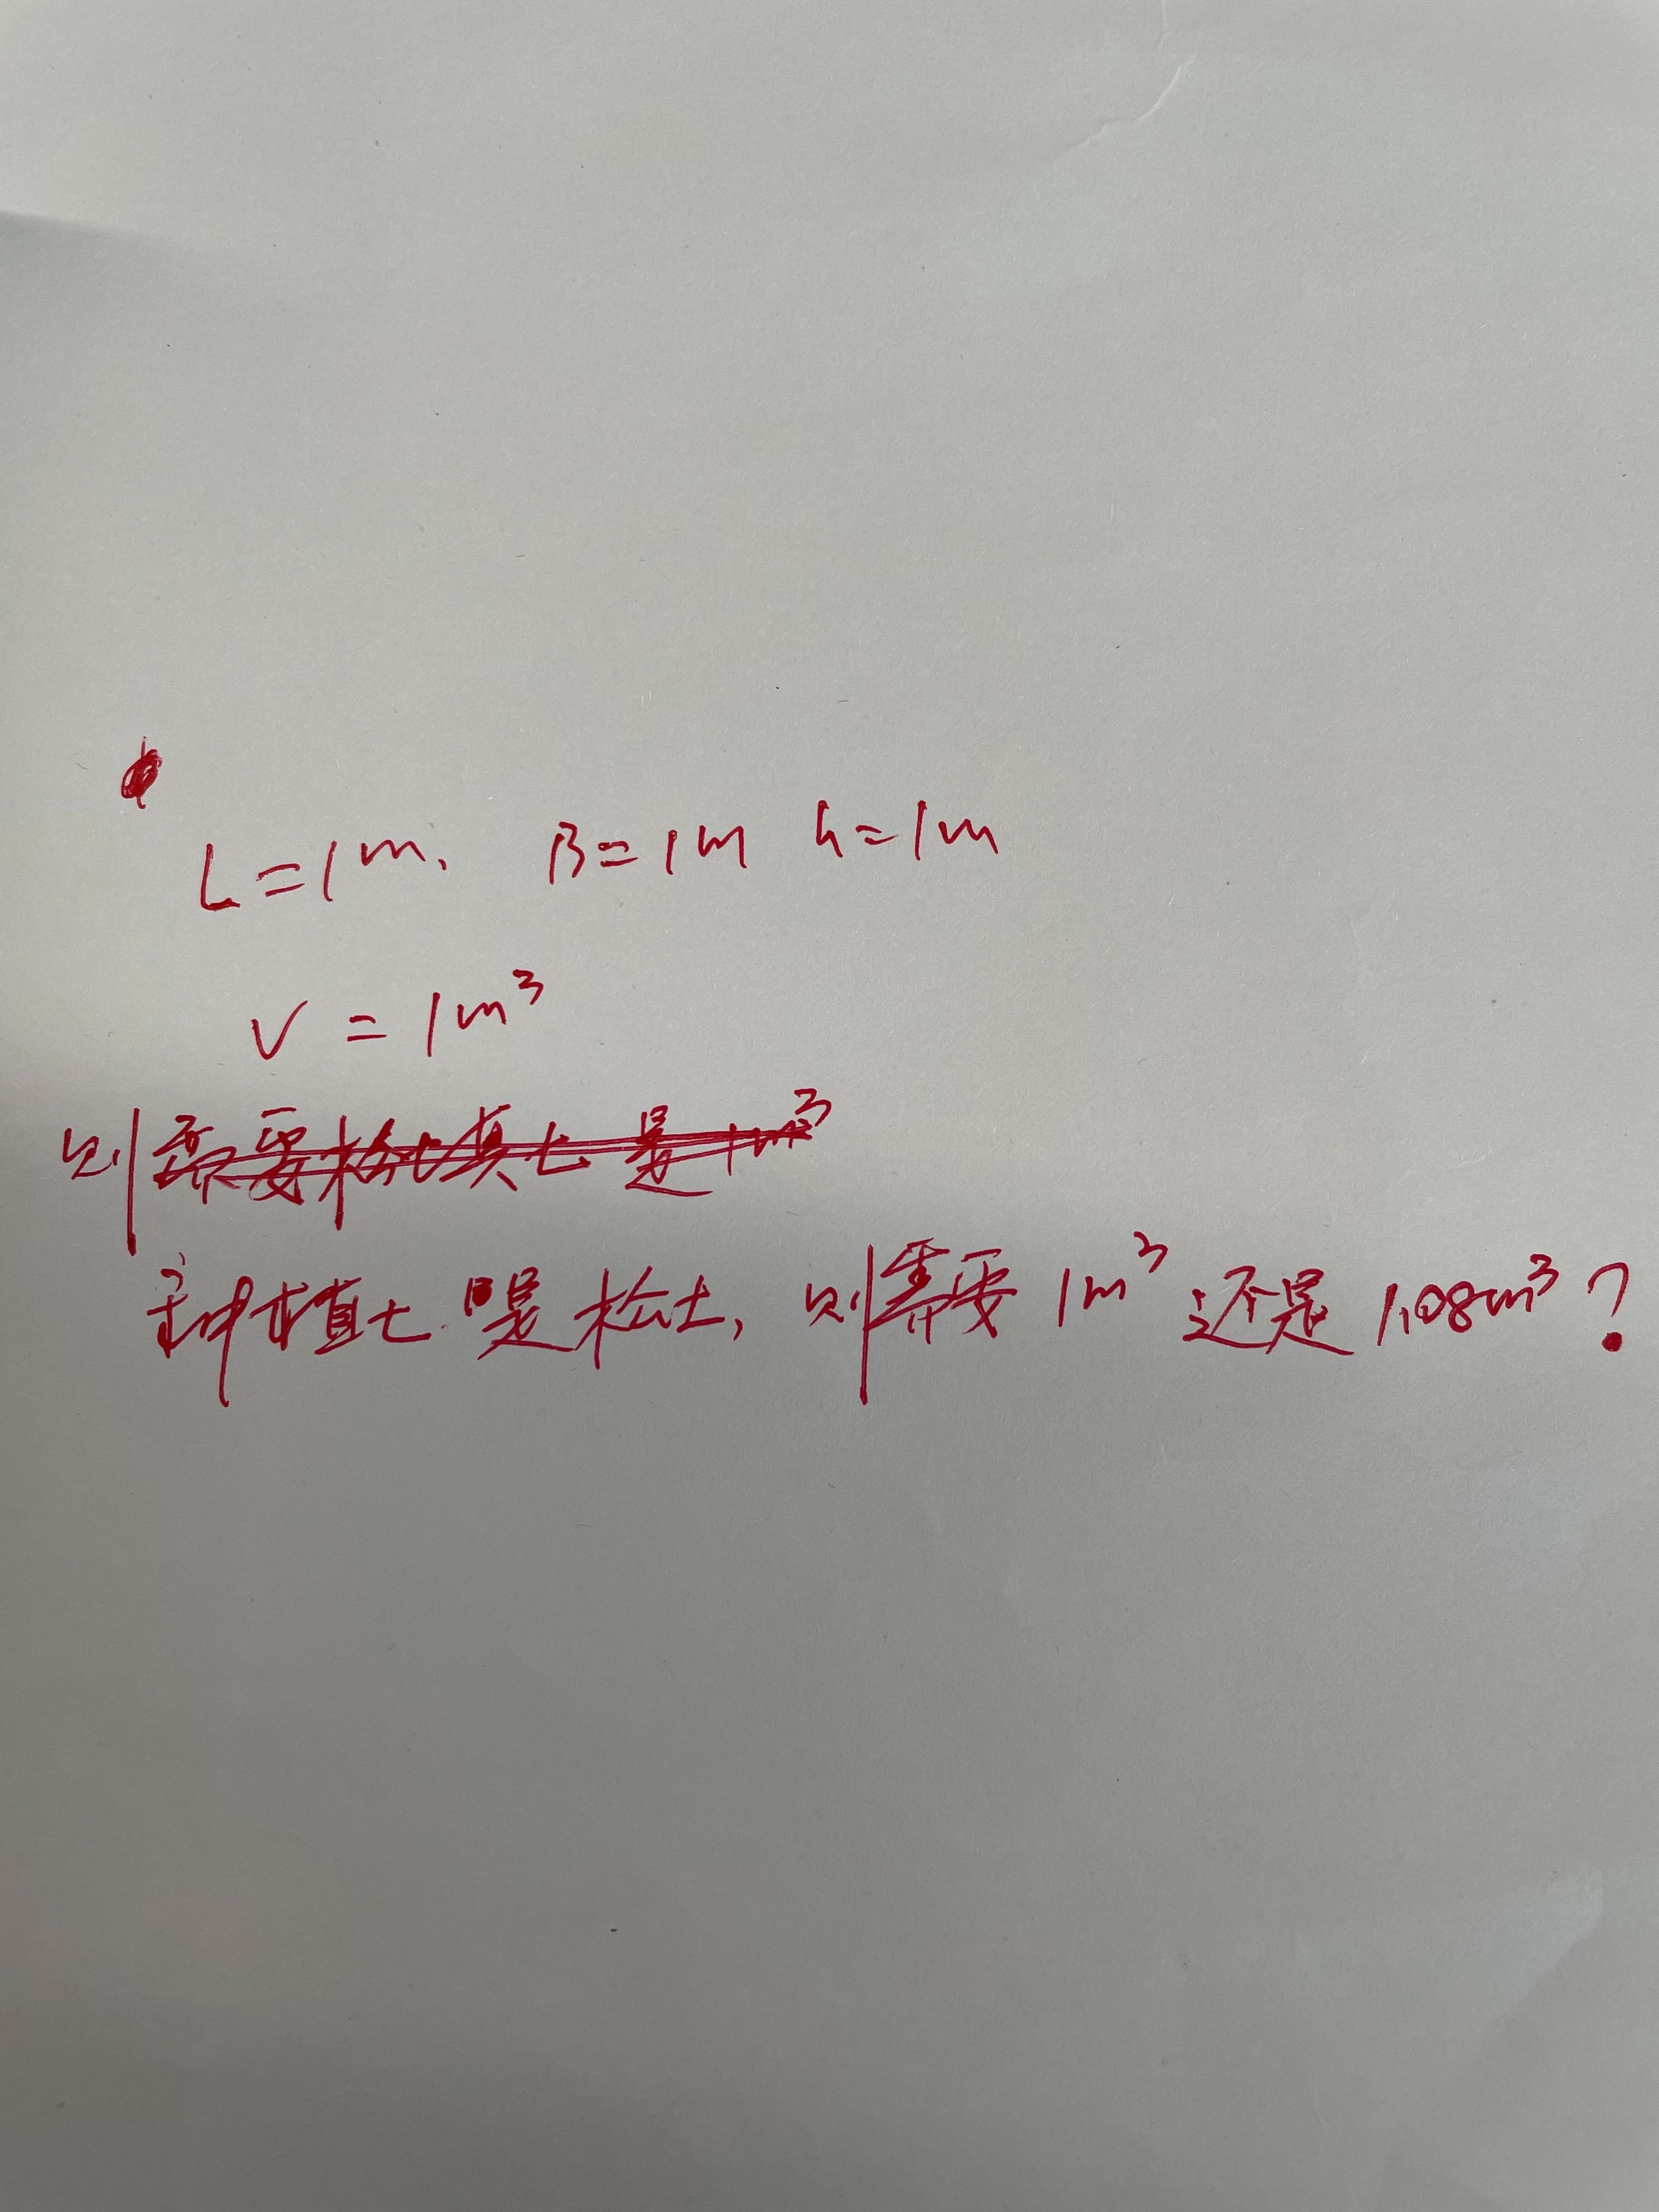 L=1m. B=1m h=1m
V=1m³
则需要松填土是1m³
种植土是松土，则需要1m³还是1.08m³？